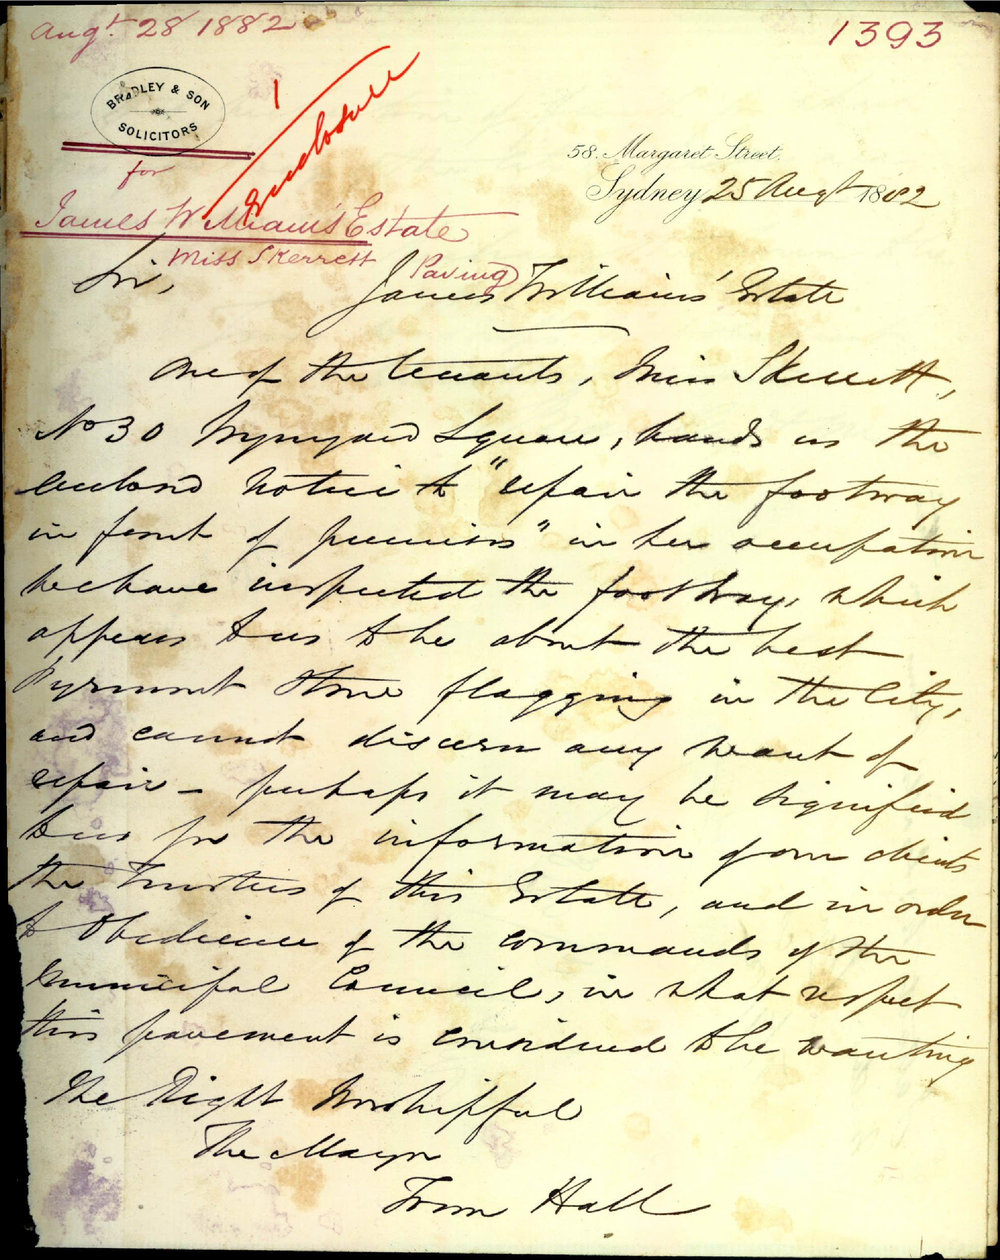 Augt. 28 1882
1393
BRADLEY & SON
SOLICITORS
1 Enclosure
58. Margaret Street.
Sydney 25 Augt 1882
for
James William's Estate
Miss Skerrett Paving
Sir,
James Williams' Estate
One of the tenants, Miss Skerrett,
No 30 Wynyard Square, hands us the
enclosed notice to "repair the footway
in front of premises" in her occupation
We have inspected the footway, which
appears to us to be about the best
Pyrmont stone flagging in the City,
and cannot discern any want of
repair - perhaps it may be signified
to us for the information of our clients
the Trustees of this Estate, and in order
to obedience of the commands of the
Municipal Council, in what respect
this pavement is considered to be wanting
The Right Worshipful
The Mayor
Town Hall